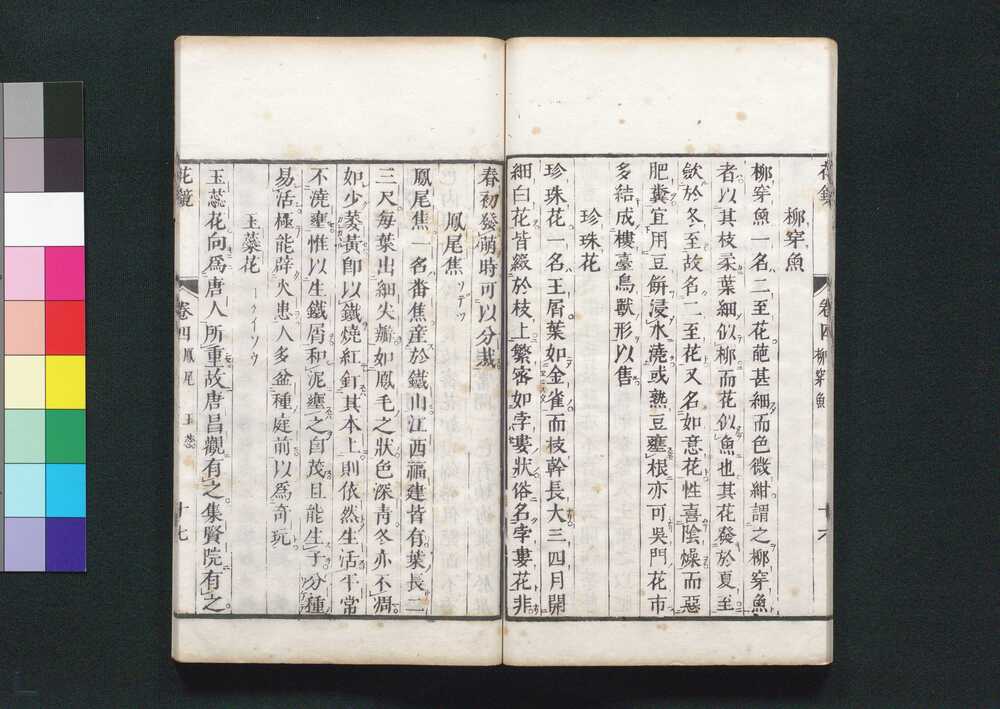 花鏡 卷四 柳穿魚 十六
柳穿魚
柳穿魚一名二至花葩甚細而色微紺謂之柳穿魚
者以其枝柔葉細似柳而花似魚也其花發於夏至
斂於冬至故名二至花又名如意花性喜陰燥而惡
肥糞宜用豆餅浸水澆或熟豆壅根亦可吳門花市
多結成樓臺鳥獸形以售
珍珠花
珍珠花一名玉屑葉如金雀而枝幹長大三四月開
細白花皆綴於枝上繁密如孛婁狀俗名孛婁花非
春初發萌時可以分栽
鳳尾蕉 ソデツ
鳳尾蕉一名番蕉產於鐵山江西福建皆有葉長二
三尺每葉出細尖瓣如鳳毛之狀色深青冬亦不凋
如少萎黃即以鐵燒紅釘其本上則依然生活平常
不澆壅惟以生鐵屑和泥壅之自茂且能生子分種
易活極能辟火患人多盆種庭前以爲奇玩
玉蘂花
玉蕊花向爲唐人所重故唐昌觀有之集賢院有之
花鏡 卷四 鳳尾 玉蕊 十七